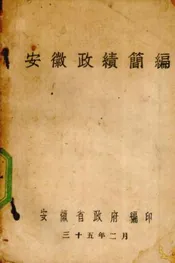 安徽政績簡編
安徽省政府編印
三十五年二月